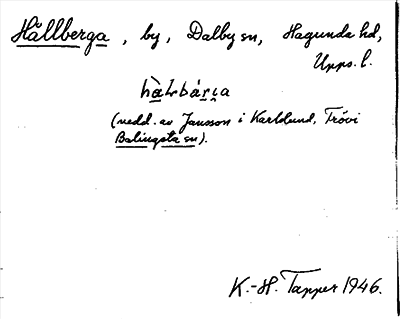 Hållberga, by, Dalby sn, Hagunda hd,
Upps. l.
(nedd. av Jansson i Karlslund, Frövi
Balingsta sn).
K.-H. Tapper 1946.